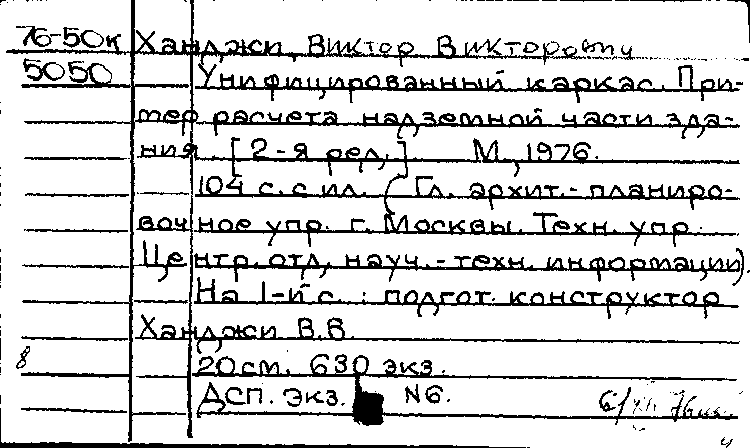 76-50к Ханджи, Виктор Викторович
5050 Унифицированный каркас. При-
мер расчета надземной части зда-
ния. [2-я ред.] М., 1976.
104 с. с ил. (Гл. архит.-планиро-
вочное упр. г. Москвы. Техн. упр.
Центр. отд. науч.-техн. информации).
На 1-й с.: подгот. конструктор
Ханджи В.В.
8 20 см. 630 экз.
ДСП. Экз. N6.